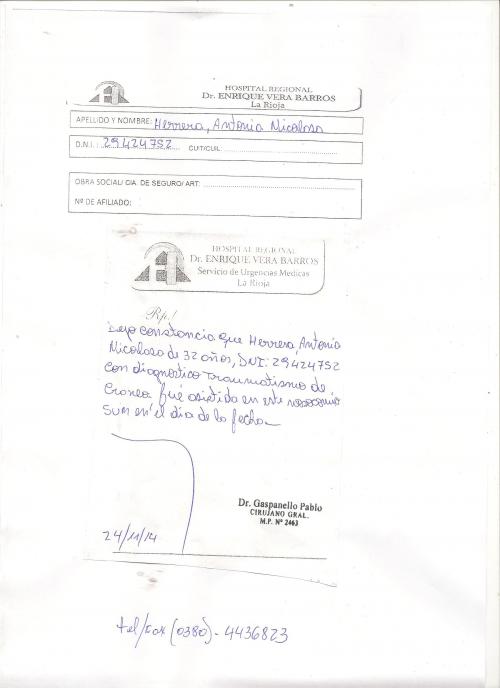 HOSPITAL REGIONAL
Dr. ENRIQUE VERA BARROS
La Rioja
APELLIDO Y NOMBRE: Herrera, Antonia Nicolasa
D.N.I.: 29424752 CUIT/CUIL:
OBRA SOCIAL/ CIA. DE SEGURO/ ART:
Nº DE AFILIADO:
HOSPITAL REGIONAL
Dr. ENRIQUE VERA BARROS
Servicio de Urgencias Medicas
La Rioja
Rp./
Dejo constancia que Herrera, Antonia
Nicolasa de 32 años, DNI: 29424752
con diagnostico Traumatismo de
Craneo fué asistida en este
SUM en el dia de la fecha
Dr. Gaspanello Pablo
CIRUJANO GRAL.
M.P. Nº 2463
24/11/14
tel/fax (0380) - 4436823